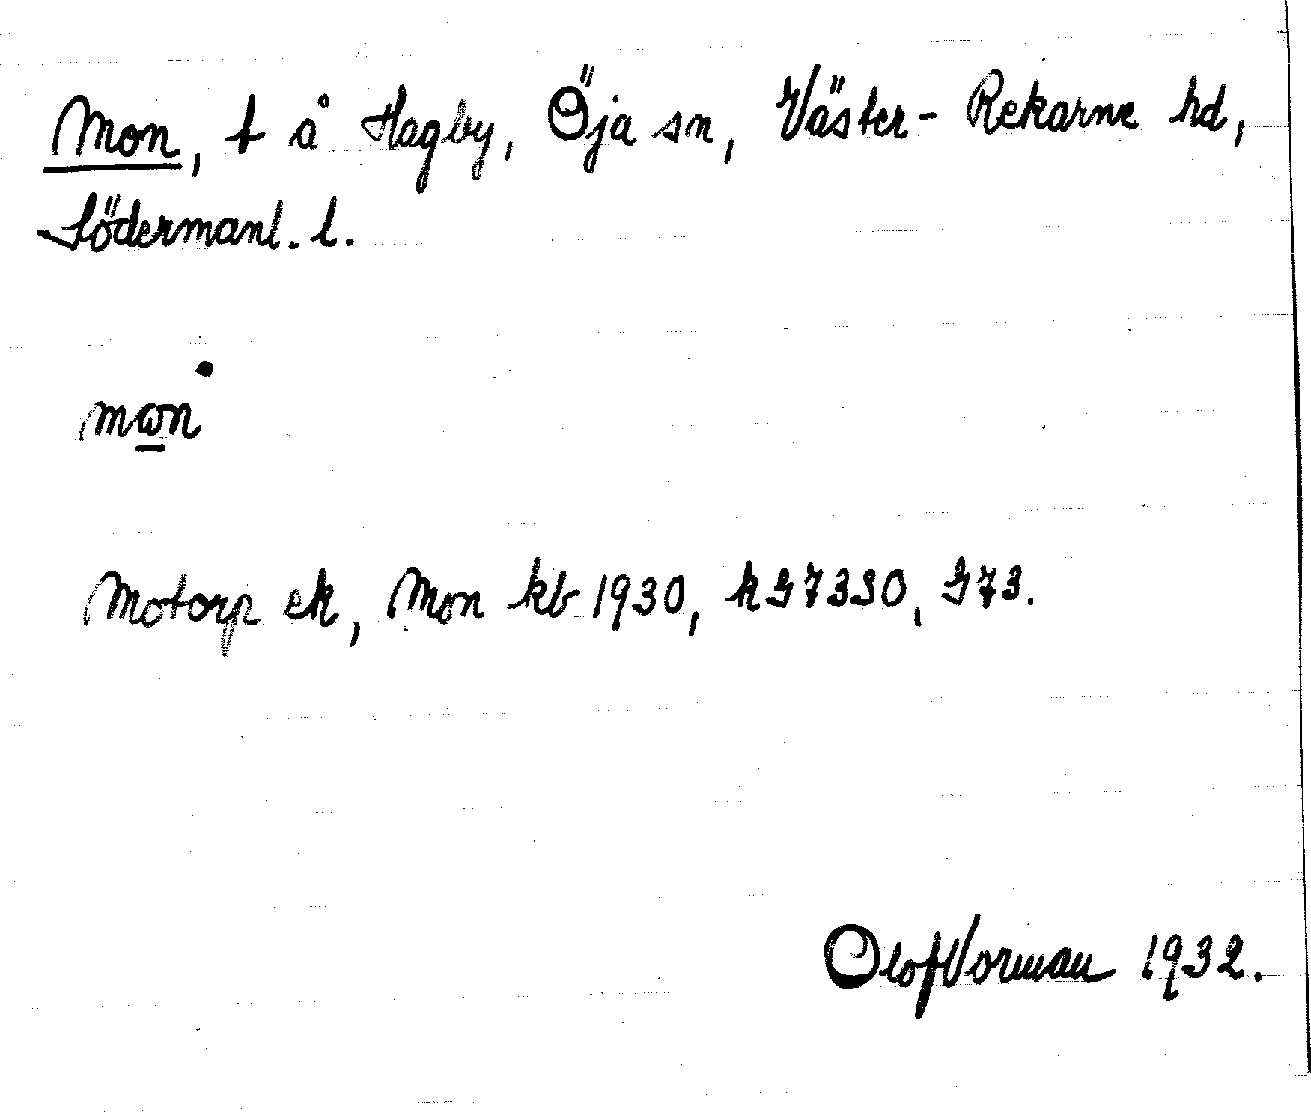 Mon, t å Hagby, Öja sn, Väster-Rekarne hd,
Södermanl. l.
mωn
Motorp ek, Mon kb 1930, k J7330, J73.
Olof Vorman 1932.